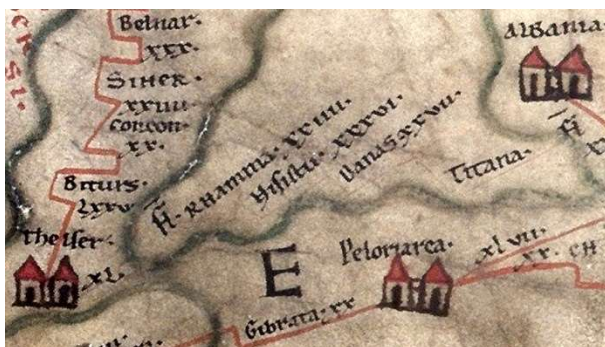 Belnar.
xxx.
Siher.
xxiiii
Concon.
xx.
Biturs.
Lxxv
Theiser.
XL.
H. Rhamma. xxiiii.
Hisistu. xxxvi.
Danas xxvii.
Titana.
Albania
H
E
Peloriarea. xlvii.
xx. CH
Gibrata. xx